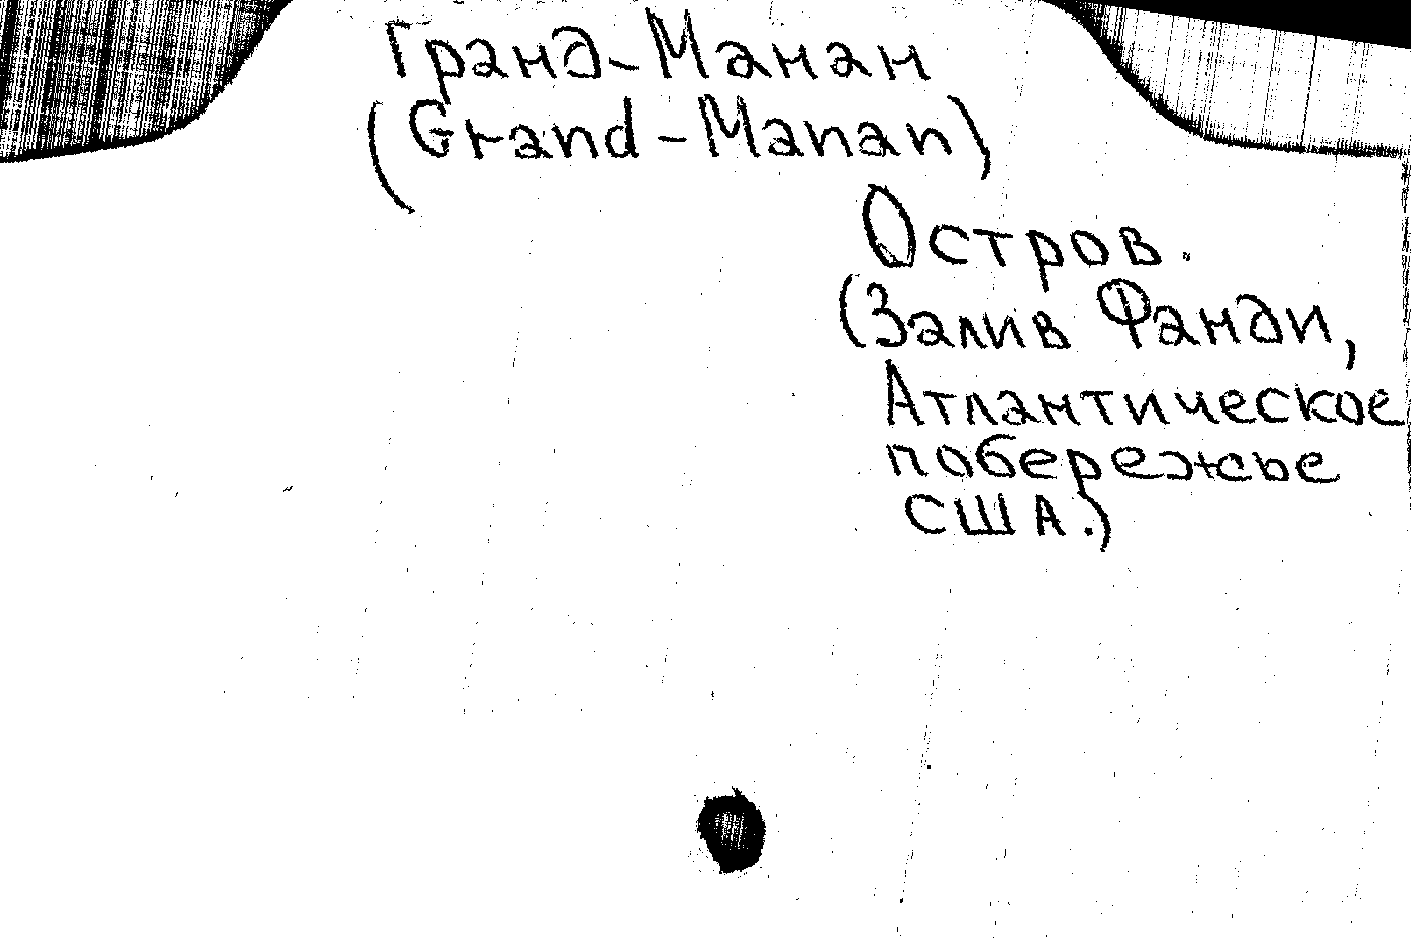 Гранд-Манан
(Grand-Manan)
Остров.
(Залив Фанди,
Атлантическое
побережье
США.)